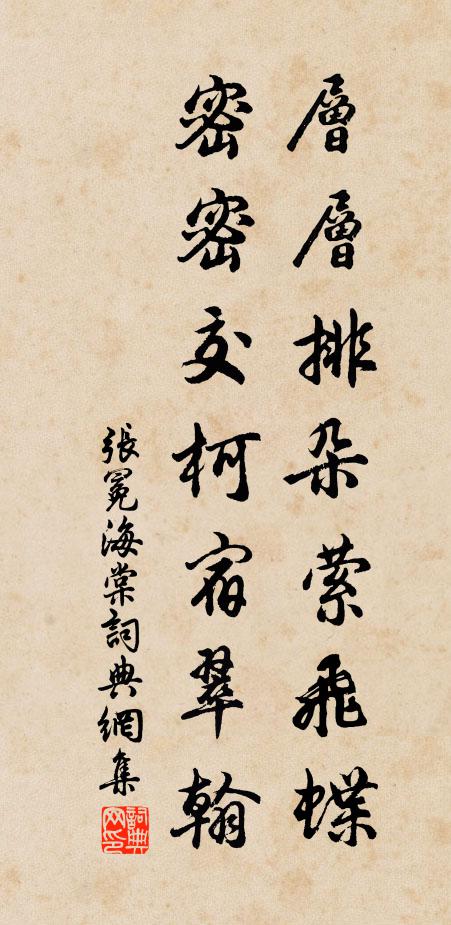 層層排朵縈飛蝶
密密交柯宿翠翰
張冕海棠詞典網集
詞典網印